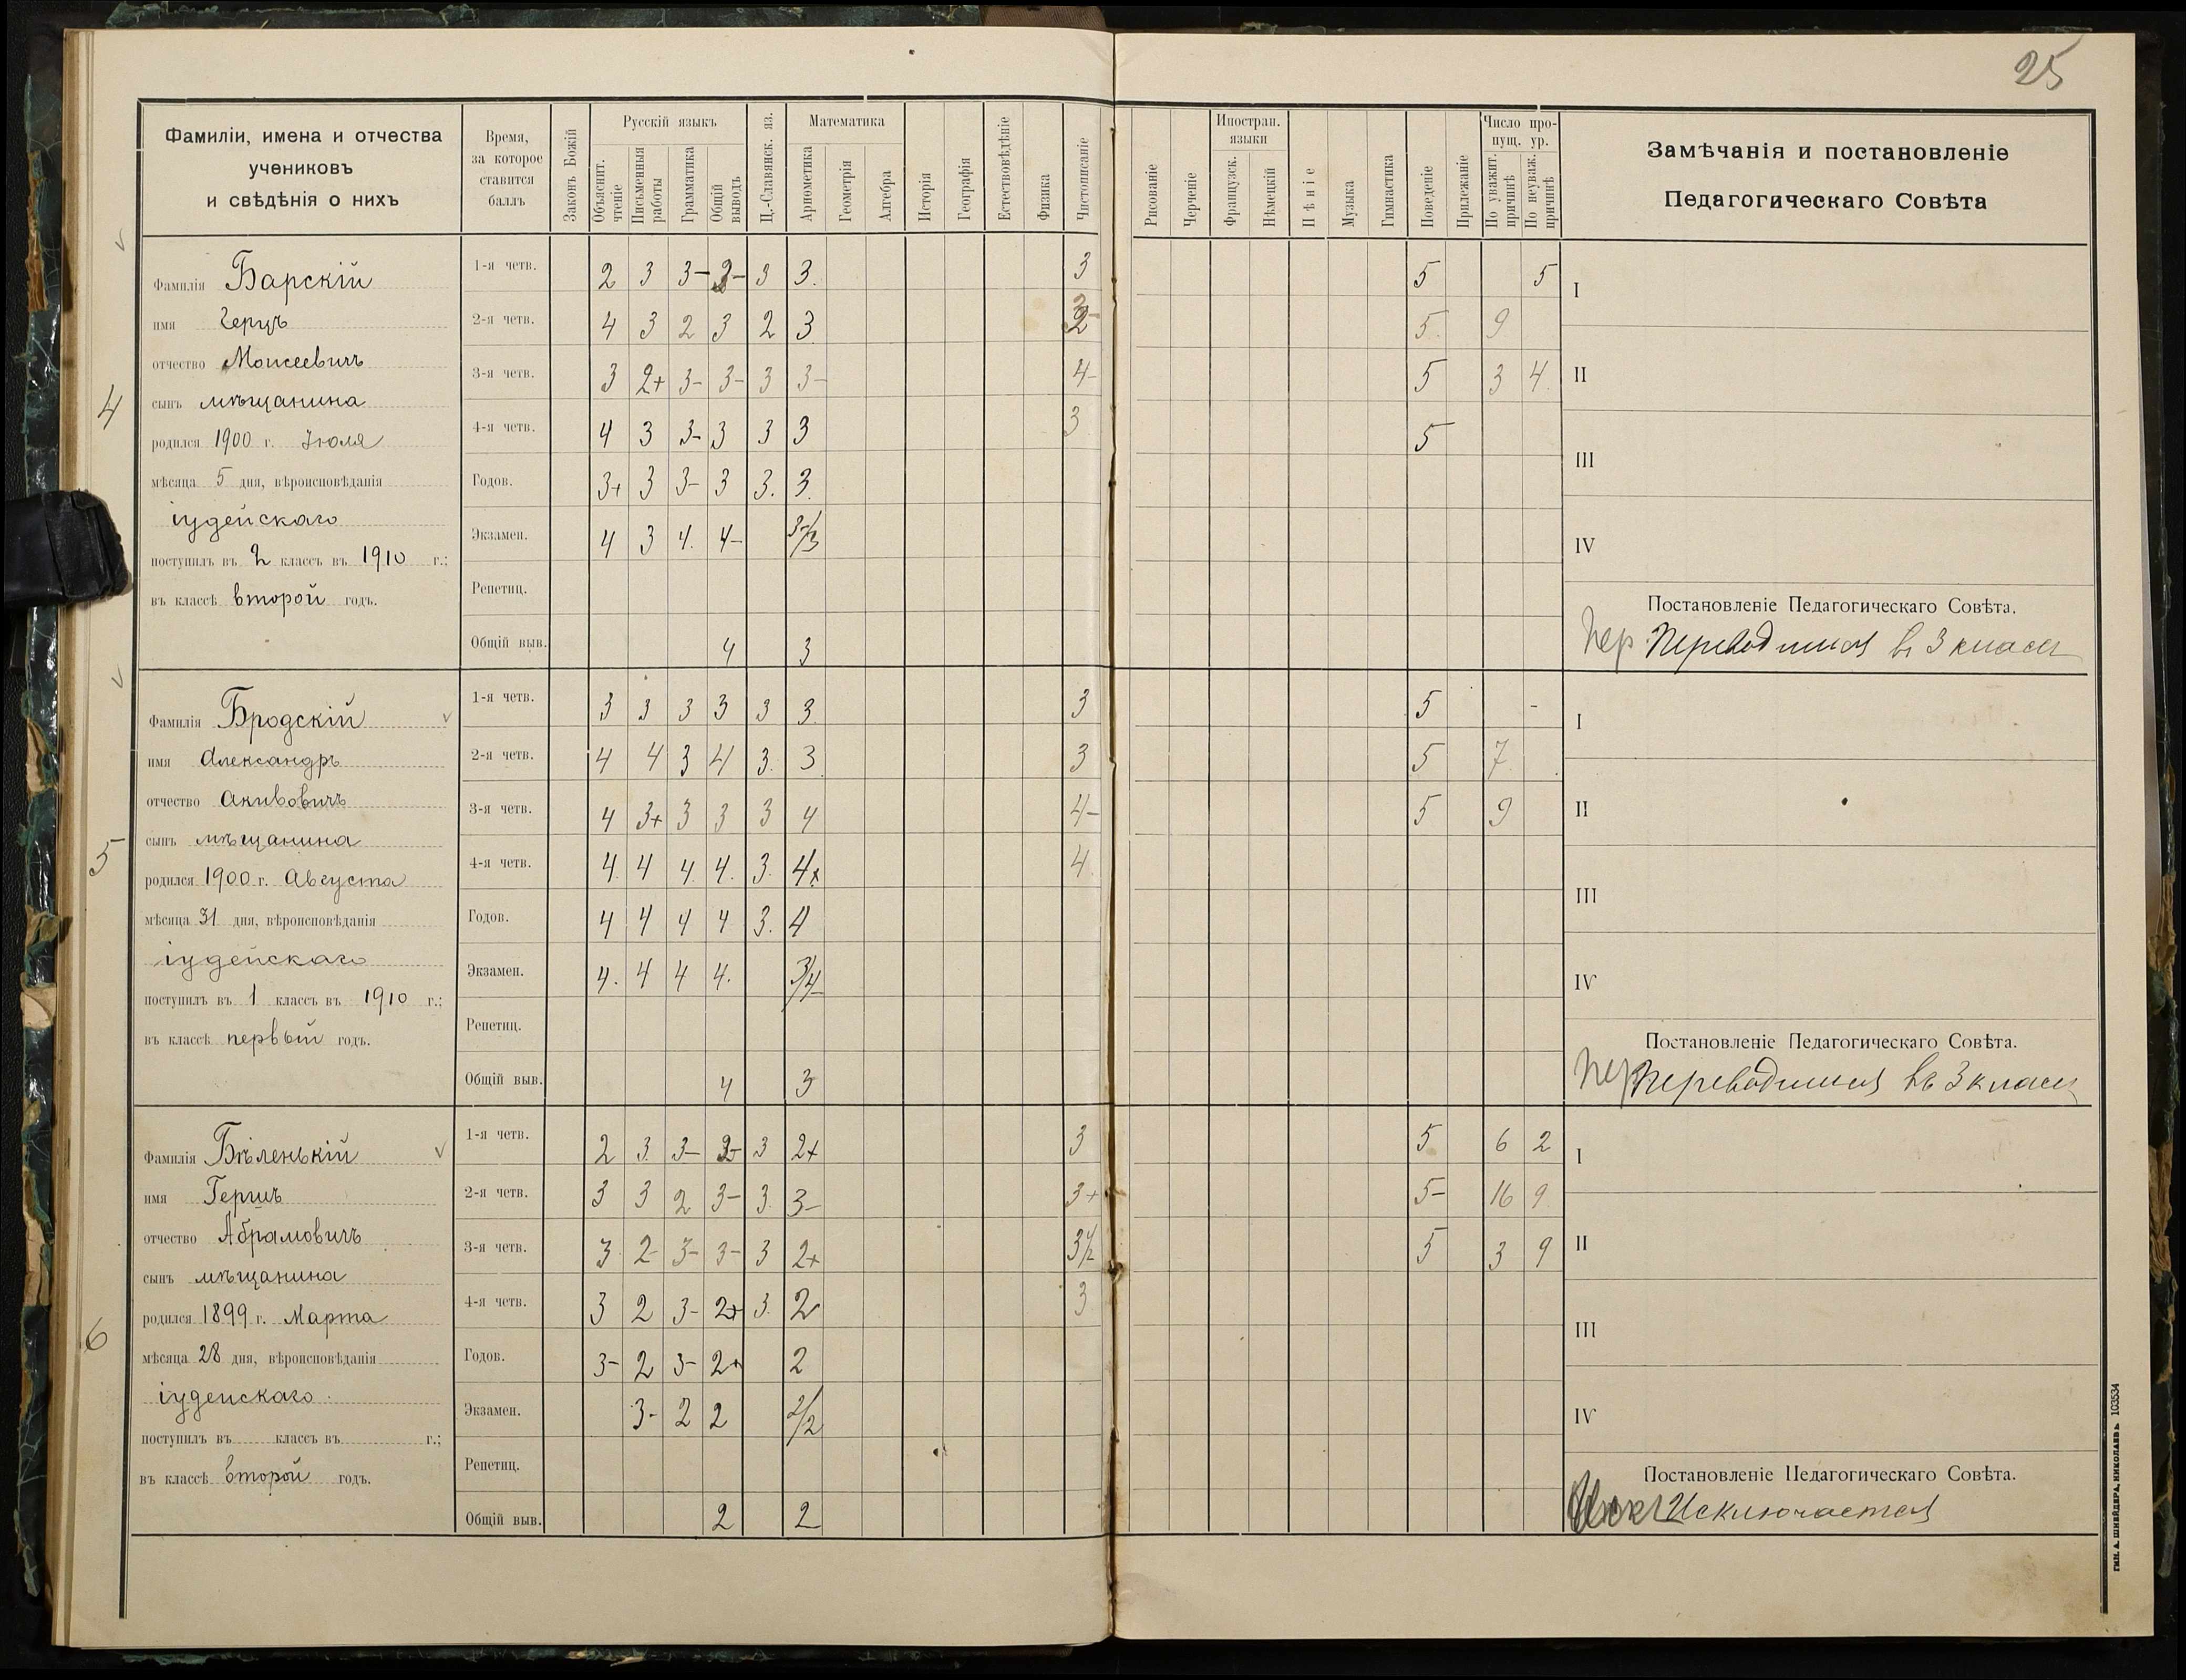 25
Фамиліи, имена и отчества
учениковъ
и свѣдѣнія о нихъ
Время,
за которое
ставится
баллъ
Законъ Божій
Русскій языкъ
Объяснит. чтеніе
Письменныя работы
Грамматика
Общій выводъ
Ц.-Славянск. яз.
Математика
Ариѳметика
Геометрія
Алгебра
Исторія
Географія
Естествовѣдѣніе
Физика
Чистописаніе
Рисованіе
Черченіе
Иностран. языки
Французск.
Нѣмецкій
Пѣніе
Музыка
Гимнастика
Поведеніе
Прилежаніе
Число пропущ. ур.
По уважит. причинѣ
По неуваж. причинѣ
Замѣчанія и постановленіе
Педагогическаго Совѣта
4
Фамилія Барскій
имя Герцъ
отчество Моисеевичъ
сынъ мѣщанина
родился 1900 г. Іюля
мѣсяца 5 дня, вѣроисповѣданія
іудейскаго
поступилъ въ 2 классъ въ 1910 г.;
въ классѣ второй годъ.
1-я четв. 2 3 3- 3- 3 3. 3 5 5
2-я четв. 4 3 2 3 2 3 5. 9
3-я четв. 3 2+ 3- 3- 3 3- 4- 5 3 4
4-я четв. 4 3 3- 3 3 3 3 5
Годов. 3+ 3 3- 3 3. 3.
Экзамен. 4 3 4. 4- 3-/3
Репетиц.
Общій выв. 4 3
I
II
III
IV
Постановленіе Педагогическаго Совѣта.
Пер Переводится въ 3 классъ
5
Фамилія Бродскій
имя Александръ
отчество Акивовичъ
сынъ мѣщанина
родился 1900 г. Августа
мѣсяца 31 дня, вѣроисповѣданія
іудейскаго
поступилъ въ 1 классъ въ 1910 г.;
въ классѣ первый годъ.
1-я четв. 3 3 3 3 3 3 3 5 -
2-я четв. 4 4 3 4 3. 3 3 5 7
3-я четв. 4 3+ 3 3 3 4 4- 5 9
4-я четв. 4. 4 4. 4. 3. 4+ 4
Годов. 4 4 4 4 3. 4
Экзамен. 4. 4 4 4. 3/4-
Репетиц.
Общій выв. 4 3
I
II
III
IV
Постановленіе Педагогическаго Совѣта.
Пер Переводится въ 3 классъ
6
Фамилія Бѣленькій
имя Гершъ
отчество Абрамовичъ
сынъ мѣщанина
родился 1899 г. Марта
мѣсяца 28 дня, вѣроисповѣданія
іудейскаго
поступилъ въ классъ въ г.;
въ классѣ второй годъ.
1-я четв. 2 3. 3- 3- 3 2+ 3 5 6 2
2-я четв. 3 3 2 3- 3. 3- 3+ 5- 16 9
3-я четв. 3 2- 3- 3- 3 2+ 3½ 5 3 9
4-я четв. 3 2 3- 2+ 3. 2 3
Годов. 3- 2 3- 2+ 2
Экзамен. 3- 2 2 2/2
Репетиц.
Общій выв. 2 2
I
II
III
IV
Постановленіе Педагогическаго Совѣта.
Исключается
ТИП. А. ШНЕЙДЕРА, НИКОЛАЕВЪ 103534